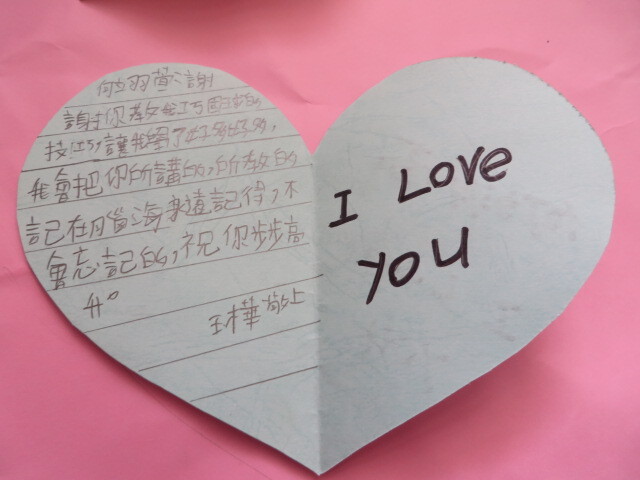 謝
謝你教我巧固球的
技巧,讓我學了好多好多,
我會把你所講的,所教的
記在腦海裡記得,不
會忘記的,祝你步步高
升。
王樺 敬上
I LOVE
YOU